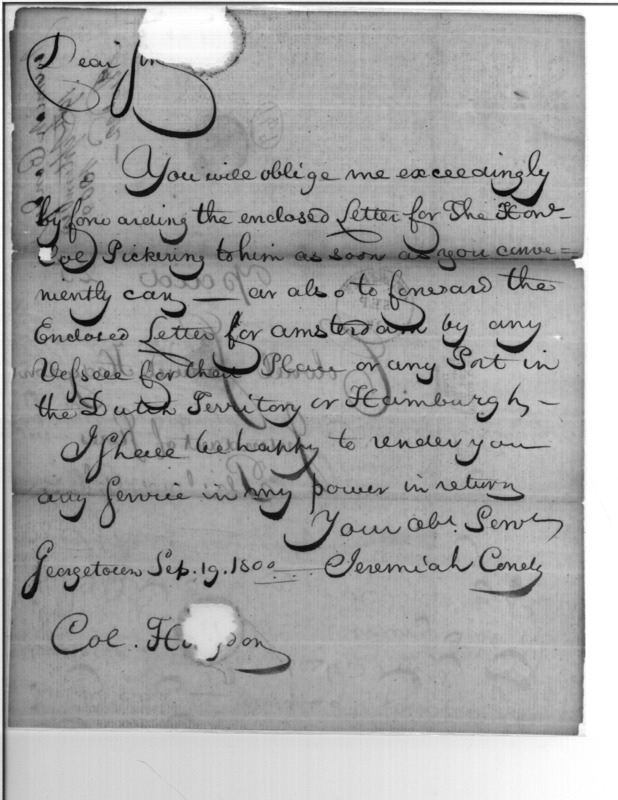 Dear Sir
You will oblige me exceedingly
by forwarding the enclosed Letter for The Honl
Col Pickering to him as soon as you conve=
niently can — as also to forward the
Enclosed Letter for amsterdam by any
Vessee for that Place or any Port in
the Dutch Territory or Hamburgh —
I Shall be happy to render you
any Service in my power in return
Your obt. Servt
Georgetown Sep. 19. 1800 Jeremiah Condy
Col. H gdon